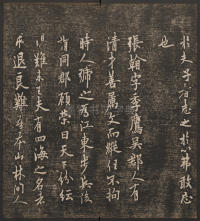 於夫子者志之於心弗敢忘
也
張翰字季鷹吳郡人有
清才善屬文而縱任不拘
時人號之為江東步兵後
謂同郡顧榮曰天下紛紜
禍難未已夫有四海之名者
求退良難吾本山林間人